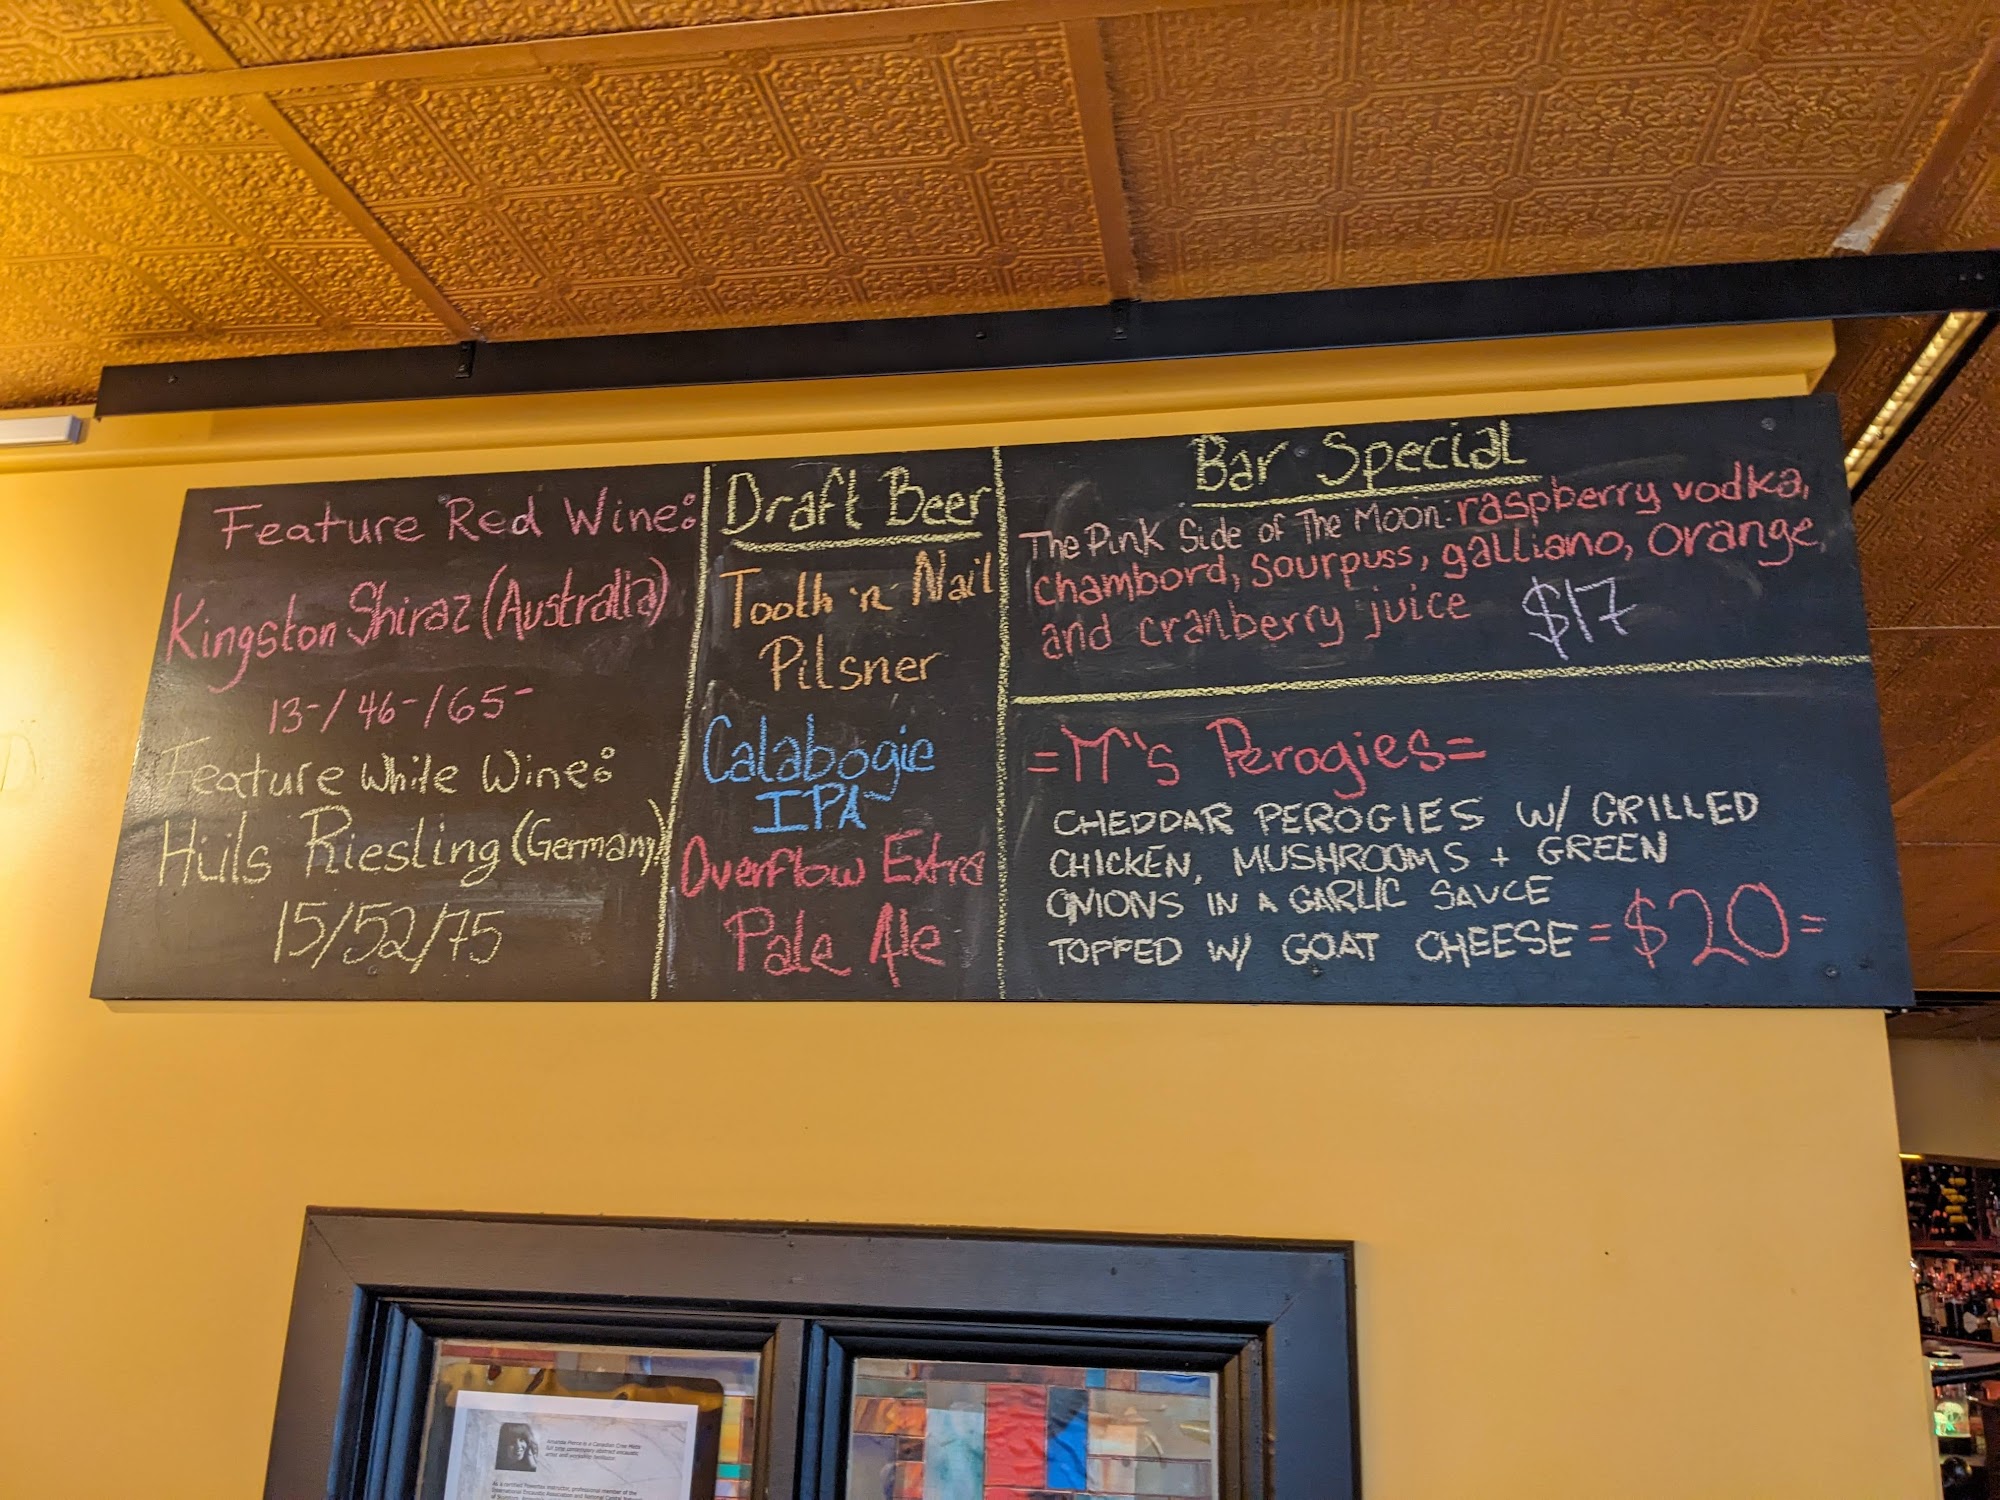 Feature Red Wine:
Kingston Shiraz (Australia)
13-/46-/65-
Feature White Wine:
Hüls Riesling (Germany)
15/52/75
Draft Beer
Tooth 'n' Nail
Pilsner
Calabogie
IPA
Overflow Extra
Pale Ale
Bar Special
The Pink Side of The Moon: raspberry vodka,
chambord, sourpuss, galliano, orange,
and cranberry juice $17
=M's Perogies=
CHEDDAR PEROGIES W/ GRILLED
CHICKEN, MUSHROOMS + GREEN
ONIONS IN A GARLIC SAUCE
TOPPED W/ GOAT CHEESE =$20=